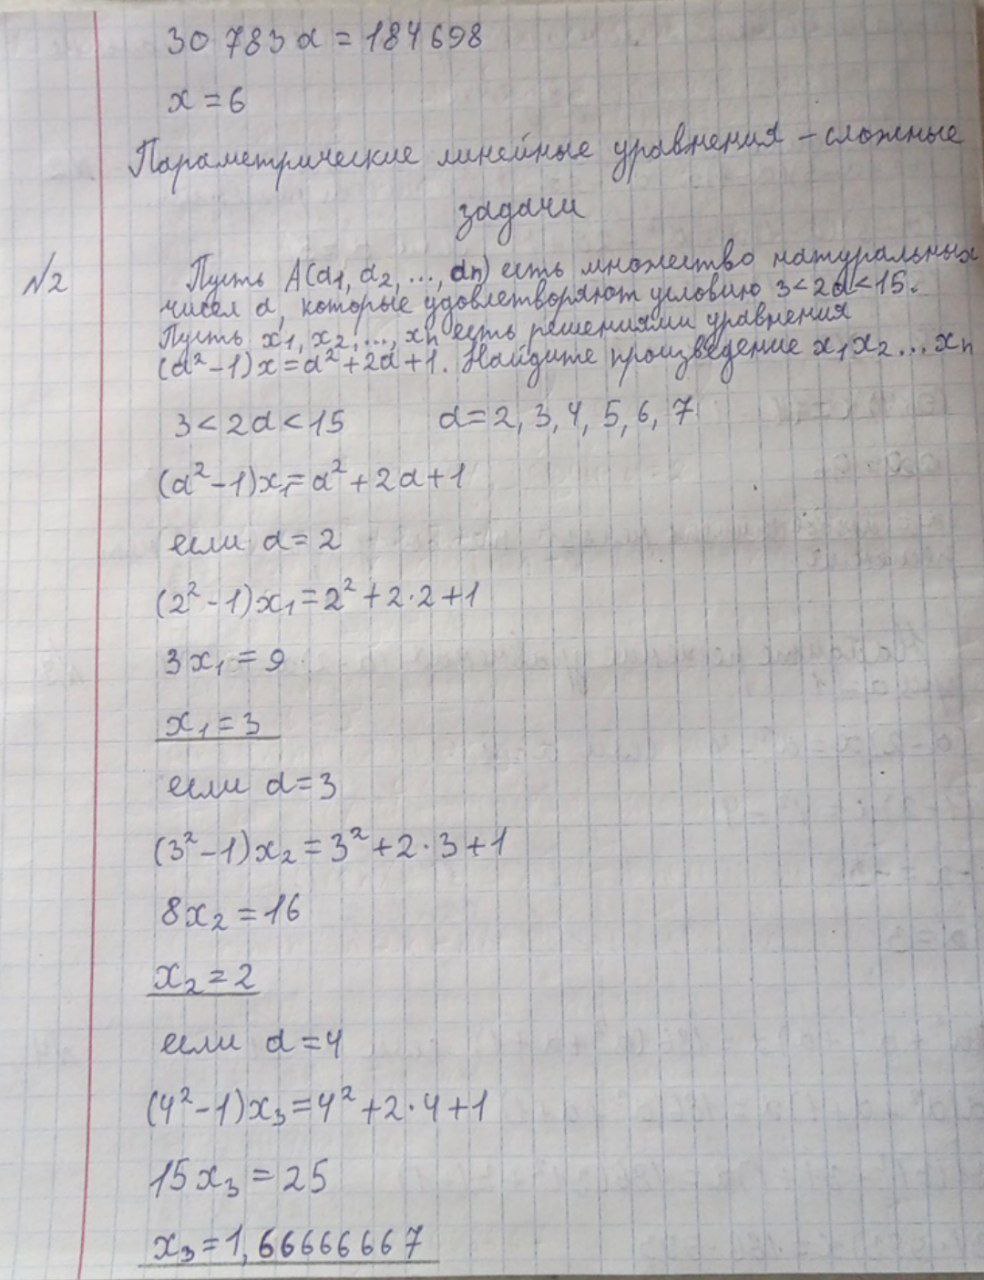 30 783 a = 184 698
x = 6
Параметрические линейные уравнения – сложные
задачи
№2 Пусть A(a₁, a₂, ..., aₙ) есть множество натуральных
чисел a, которые удовлетворяют условию 3 < 2a < 15.
Пусть x₁, x₂, ..., xₙ есть решениями уравнения
(a² – 1)x = a² + 2a + 1. Найдите произведение x₁x₂...xₙ
3 < 2a < 15 a = 2, 3, 4, 5, 6, 7
(a² – 1)x₁ = a² + 2a + 1
если a = 2
(2² – 1)x₁ = 2² + 2·2 + 1
3x₁ = 9
x₁ = 3
если a = 3
(3² – 1)x₂ = 3² + 2·3 + 1
8x₂ = 16
x₂ = 2
если a = 4
(4² – 1)x₃ = 4² + 2·4 + 1
15x₃ = 25
x₃ = 1,66666667